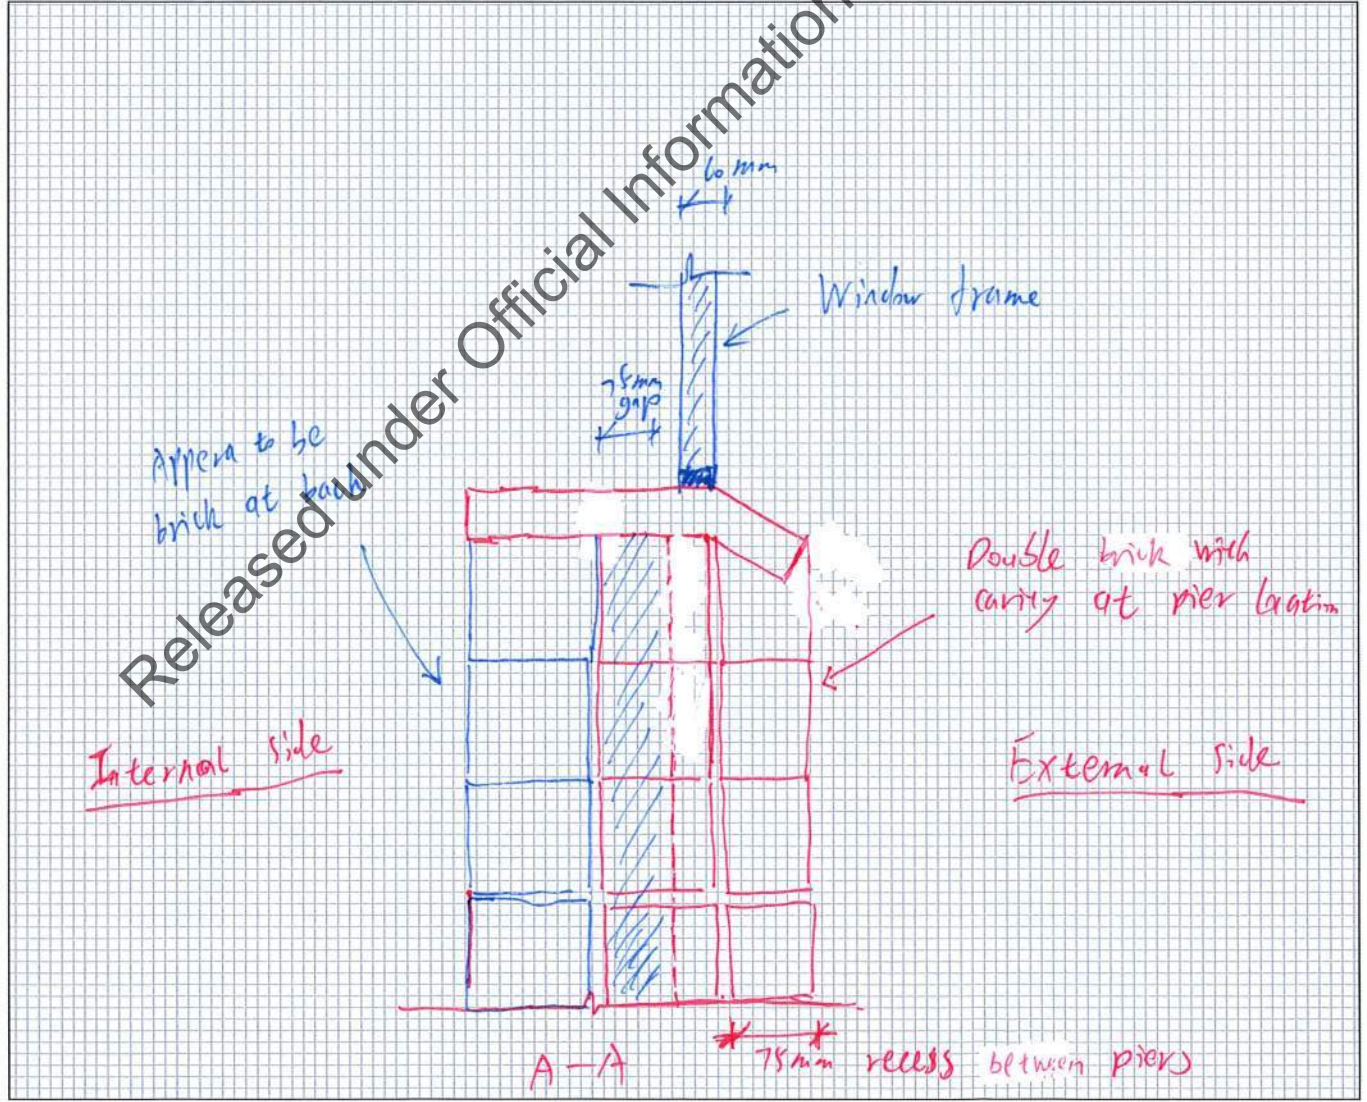 Released under Official Information
60 mm
Window frame
75mm
gap
Appear to be
brick at back
Double brick with
cavity at pier location
Internal side
External side
A-A
75mm recess between piers